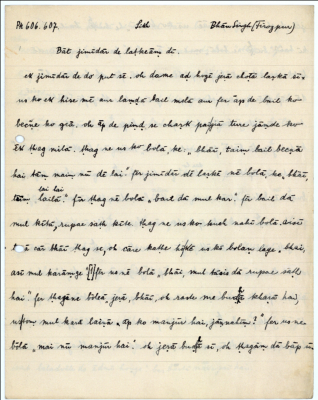 PK 606. 607. Sikh Bhān Singh (Firozpur)
Bāt jimīdār de laṛkeāṃ dī.
ek jimīdār de do put sī. oh dame ad hogē jeṛā choṭa laṛkā sī.
us ko ek hisse mē aur laṃḍā bail melā aur fer āp de bail ko
becṇe ko gēā. oh āp de piṇḍ se chaṛk ture jāṇde ko
ek ṭhag milā. ṭhag ne us ko bolā, ke: „bhāū, taiṃ bail becṇā
hai tāṃ mainū nū de lai." fer jimīdār de laṛkē nē bolā, ke, bhāū,
lai lai
lailā." fir ṭhag ne bolā „bail dā mul kar." fir bail dā
mul kītā, rupae saṭh kīte. ṭhag ne us ko kuch nahī bolā,
cār bhāū ṭhag se, oh cāre kaṭṭhe us ko bolaṇ lage „bhāī,
asī mul karāṃge." fer us nē bolā „bhāī, mul dā rupae saṭh
hai." fer ṭhagāne boleā, jeṛā, bhāū, oh raste me khaṛā hai,
mul karā laiṇā, āp ko manjūr hai, jā nahīṃ?" fer us ne
bolā „mai nū manjūr hai." oh jeṛā sī, oh ṭhagāṃ dā bāp sī,